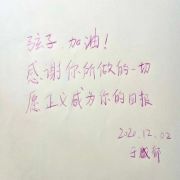 弦子 加油！
感谢你所做的一切
愿正义成为你的日报
2020.12.02
于